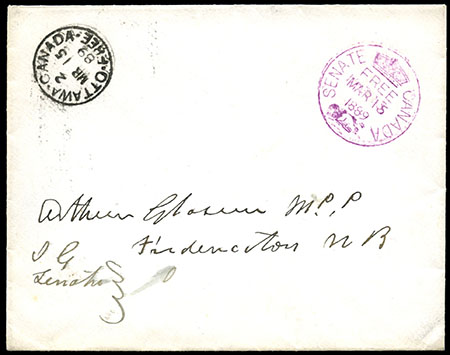 OTTAWA·CANADA·FREE·
2
MR 15
89
SENATE CANADA
FREE
MAR 15
1889
Arthur Glasier M.P.P
Fredericton N B
J G
Senator